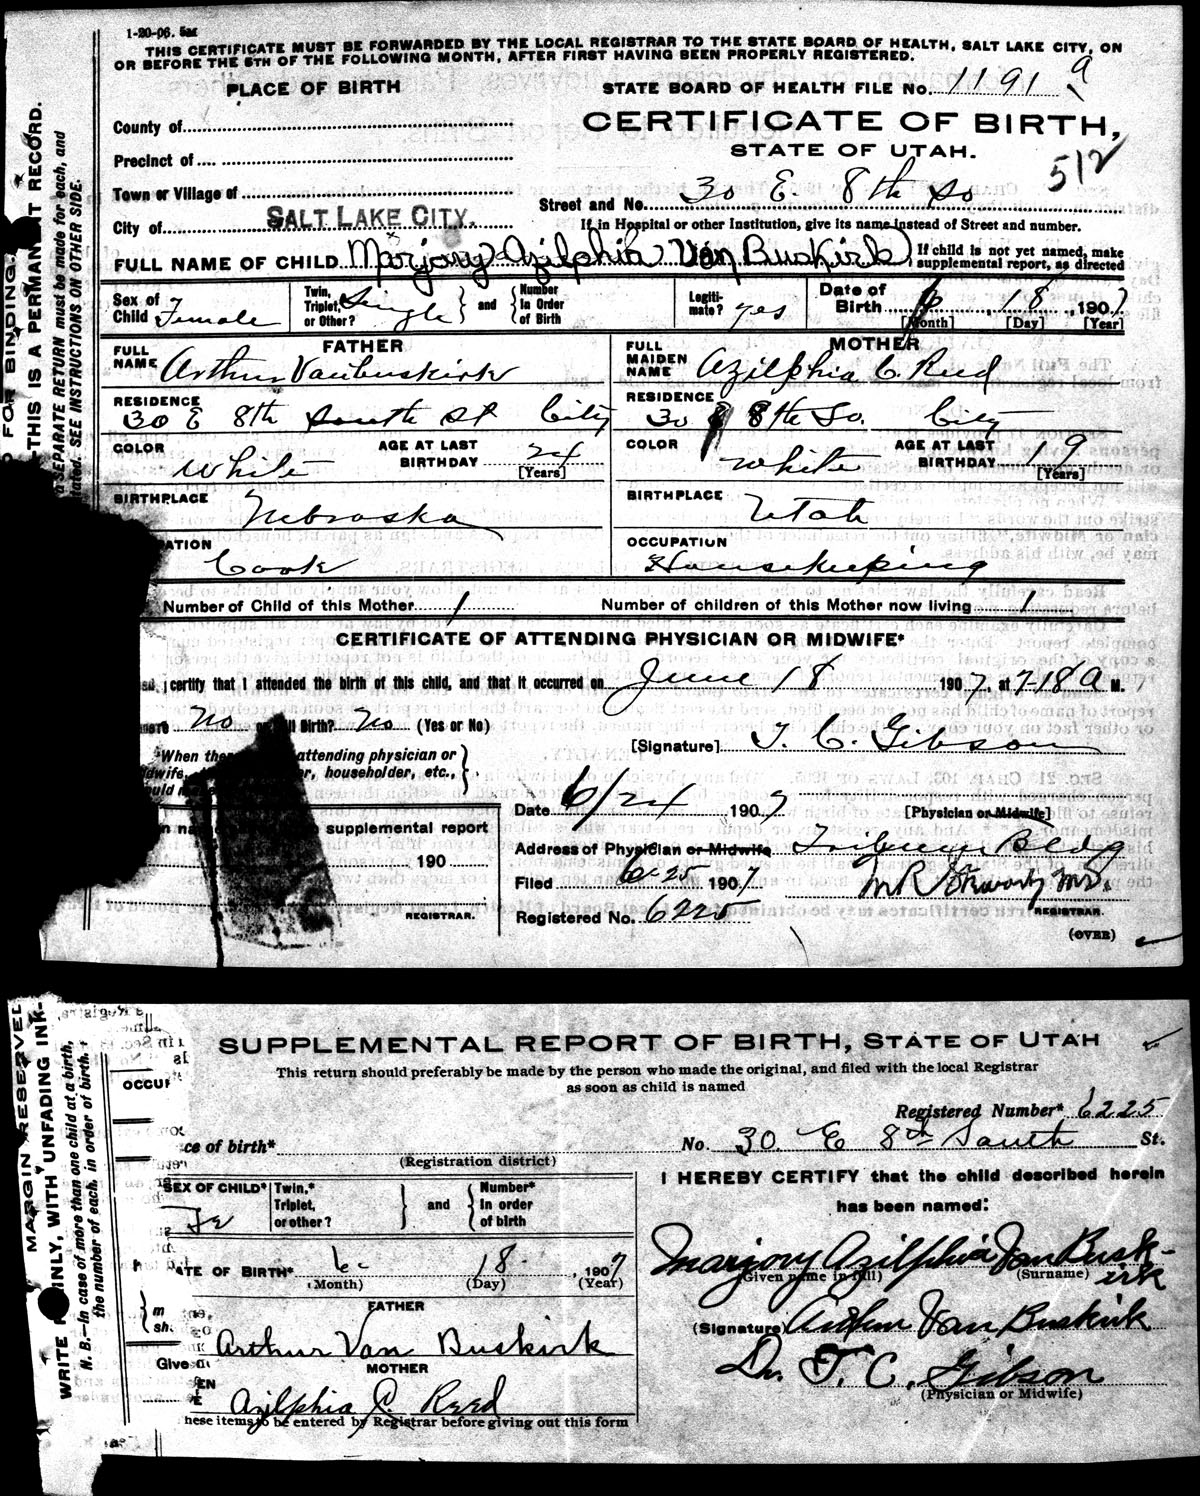 1-20-06. 5m
THIS CERTIFICATE MUST BE FORWARDED BY THE LOCAL REGISTRAR TO THE STATE BOARD OF HEALTH, SALT LAKE CITY, ON
OR BEFORE THE 5TH OF THE FOLLOWING MONTH, AFTER FIRST HAVING BEEN PROPERLY REGISTERED.
PLACE OF BIRTH
STATE BOARD OF HEALTH FILE No. 1191 a
County of
CERTIFICATE OF BIRTH,
Precinct of
STATE OF UTAH.
512
Town or Village of
Street and No. 30 E. 8th So
City of SALT LAKE CITY.
If in Hospital or other Institution, give its name instead of Street and number.
FULL NAME OF CHILD Marjory Azilphia Van Buskirk
If child is not yet named, make
supplemental report, as directed
Sex of Child Female
Twin, Triplet, or Other? Single } and { Number In Order of Birth
Legiti-mate? yes
Date of Birth 6 18, 1907
[Month] [Day] [Year]
FATHER
MOTHER
FULL NAME Arthur Vanbuskirk
FULL MAIDEN NAME Azilphia C. Reed
RESIDENCE 30 E 8th South St City
RESIDENCE 30 E 8th So. City
COLOR White AGE AT LAST BIRTHDAY 24 [Years]
COLOR White AGE AT LAST BIRTHDAY 19 [Years]
BIRTHPLACE Nebraska
BIRTHPLACE Utah
PATION Cook
OCCUPATION Housekeeping
Number of Child of this Mother 1
Number of children of this Mother now living 1
CERTIFICATE OF ATTENDING PHYSICIAN OR MIDWIFE*
I certify that I attended the birth of this child, and that it occurred on June 18 1907, at 7-18 a M.
no Birth? no (Yes or No)
[Signature] T. C. Gibson
*When attending physician or
householder, etc.,
Date 6/24 1907
[Physician or Midwife]
supplemental report
Address of Physician or Midwife Tribune Bldg
190
Filed 6-25 1907
REGISTRAR.
Registered No. 6225
REGISTRAR.
(OVER)
THIS IS A PERMANENT RECORD.
FOR BINDING.
a SEPARATE RETURN must be made for each, and
stated. SEE INSTRUCTIONS ON OTHER SIDE.
SUPPLEMENTAL REPORT OF BIRTH, STATE OF UTAH
This return should preferably be made by the person who made the original, and filed with the local Registrar
as soon as child is named
Registered Number* 6225
ce of birth*
No. 30 E 8th South St.
(Registration district)
SEX OF CHILD* Fe
Twin,* Triplet, or other? } and { Number* In order of birth
I HEREBY CERTIFY that the child described herein
has been named:
Marjory Azilphia Van Busk-
irk
(Given name in full) (Surname)
ATE OF BIRTH* 6 18, 1907
(Month) (Day) (Year)
FATHER
Arthur Van Buskirk
(Signature) Arthur Van Buskirk
MOTHER
Azilphia C. Reed
Dr. T. C. Gibson
(Physician or Midwife)
hese items to be entered by Registrar before giving out this form
MARGIN RESERVED
WRITE PLAINLY, WITH UNFADING INK-
N. B.—In case of more than one child at a birth,
the number of each, in order of birth.